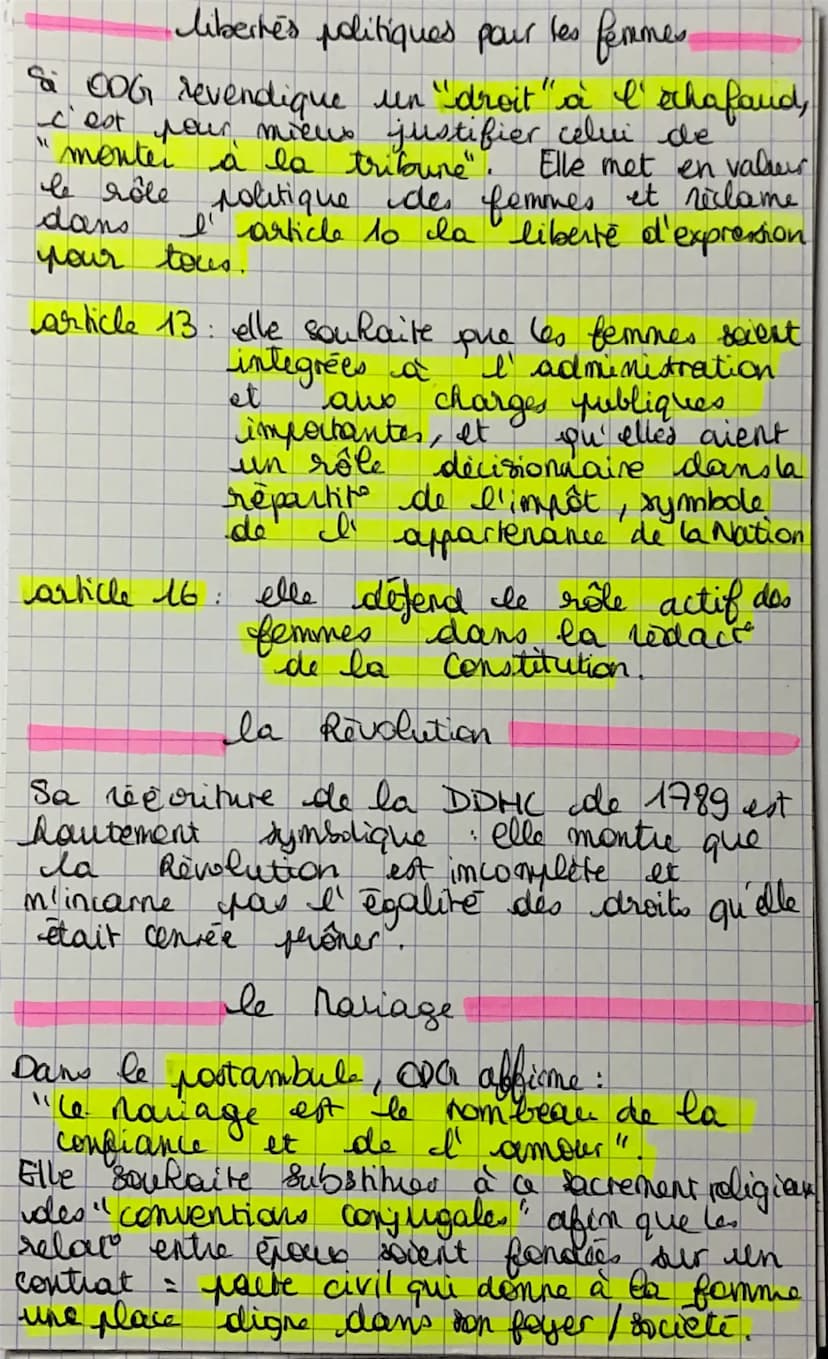 libertés politiques pour les femmes
Si ODG revendique un "droit" à l'échafaud,
c'est pour mieux justifier celui de
"monter à la tribune". Elle met en valeur
le rôle politique des femmes et réclame
dans l'article 10 la liberté d'expression
pour tous.
article 13 : elle souhaite que les femmes soient
intégrées à l'administration
et aux charges publiques
importantes, et qu'elles aient
un rôle décisionnaire dans la
répartit° de l'impôt, symbole
de l'appartenance de la Nation
article 16 : elle défend le rôle actif des
femmes dans la rédact°
de la Constitution.
la Révolution
Sa réécriture de la DDHC de 1789 est
hautement symbolique : elle montre que
la Révolution est incomplète et
n'incarne pas l'égalité des droits qu'elle
était censée prôner.
le Mariage
Dans le postambule, ODG affirme :
"Le mariage est le tombeau de la
confiance et de l'amour".
Elle souhaite substituer à ce sacrement religieux
des "conventions conjugales" afin que les
relat° entre époux soient fondées sur un
contrat = pacte civil qui donne à la femme
une place digne dans son foyer / société.